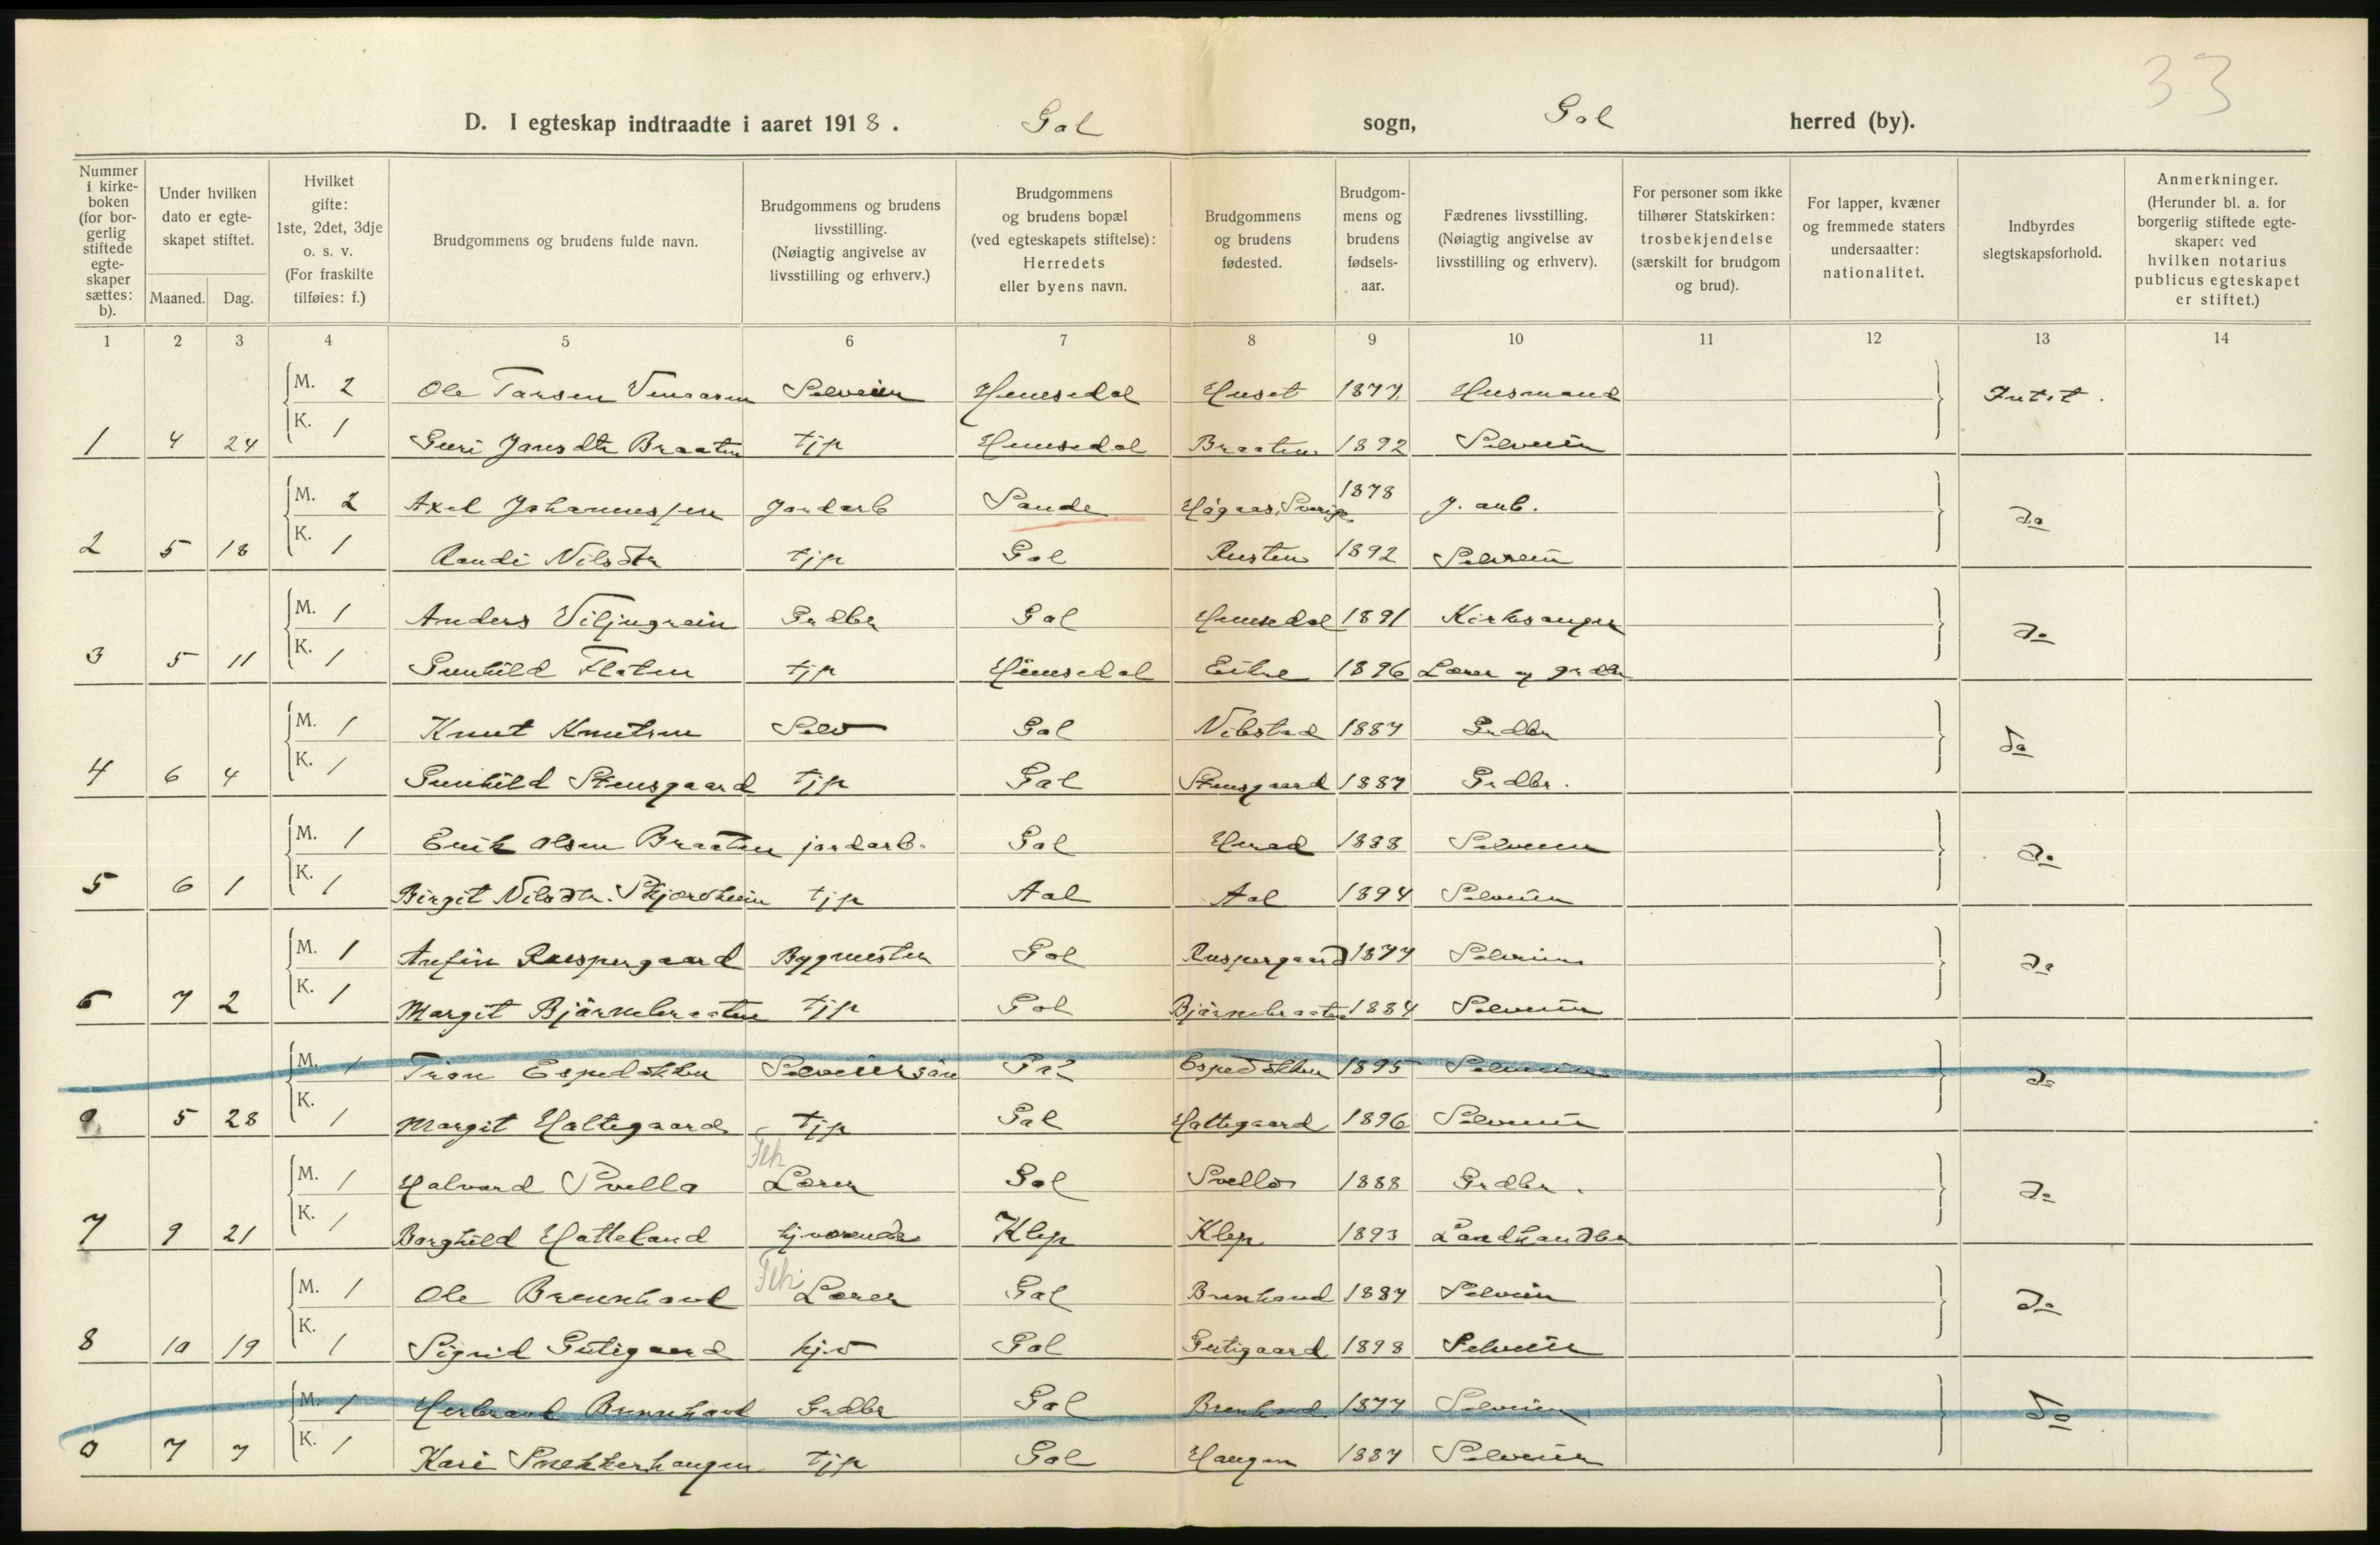 33
D. I egteskap indtraadte i aaret 1918. Gol sogn, Gol herred (by).
Nummer i kirkeboken (for borgerlig stiftede egteskaper sættes: b).
Under hvilken dato er egteskapet stiftet.
Maaned. Dag.
Hvilket gifte: 1ste, 2det, 3dje o. s. v. (For fraskilte tilføies: f.)
Brudgommens og brudens fulde navn.
Brudgommens og brudens livsstilling. (Nøiagtig angivelse av livsstilling og erhverv.)
Brudgommens og brudens bopæl (ved egteskapets stiftelse): Herredets eller byens navn.
Brudgommens og brudens fødested.
Brudgommens og brudens fødselsaar.
Fædrenes livsstilling. (Nøiagtig angivelse av livsstilling og erhverv).
For personer som ikke tilhører Statskirken: trosbekjendelse (særskilt for brudgom og brud).
For lapper, kvæner og fremmede staters undersaatter: nationalitet.
Indbyrdes slegtskapsforhold.
Anmerkninger. (Herunder bl. a. for borgerlig stiftede egteskaper: ved hvilken notarius publicus egteskapet er stiftet.)
1 2 3 4 5 6 7 8 9 10 11 12 13 14
M. 2 Ole Larsen Selveier Hemsedal Huset 1877 Husmand Intet.
1 4 24 K. 1 Guri Jansdtr Braaten tjp Hemsedal Braaten 1892 Selveier
M. 2 Axel Johannessen Jordarb Sande Sverige 1878 J. arb. do
2 5 18 K. 1 Randi Nilsdtr tjp Gol Rusten 1892 Selveier
M. 1 Anders Viljugrein Grdbr Gol Hemsedal 1891 Kirkesanger do
3 5 11 K. 1 Gunhild Flaten tjp Hemsedal 1896 Lærer og grdbr
M. 1 Knut Knutsen Selv Gol 1887 Grdbr do
4 6 4 K. 1 Gunhild Stensgaard tjp Gol Stensgaard 1887 Grdbr.
M. 1 Erik Olsen Braaten jordarb. Gol 1888 Selveier do
5 6 1 K. 1 Birgit Nilsdtr. Skjærsheim tjp Aal Aal 1894 Selveier
M. 1 Anfin Ruspergaard Bygmester Gol Ruspergaard 1877 Selveier do
6 7 2 K. 1 Margit Bjørnebraaten tjp Gol Bjørnebraaten 1884 Selveier
M. 1 Tron Espedokken Selveiersøn Gol Espedokken 1895 Selveier do
5 28 K. 1 Margit Haltegaard tjp Gol Haltegaard 1896 Selveier
M. 1 Halvard Svello Lærer Gol Svello 1888 Grdbr. do
7 9 21 K. 1 Borghild Hatteland hj.værende Klep Klep 1893 Landhandler
M. 1 Ole Brennhovd Lærer Gol Brenhovd 1887 Selveier do
8 10 19 K. 1 Sigrid Gutigaard hjv Gol Gutigaard 1898 Selveier
M. 1 Herbrand Brennhovd Grdbr Gol Brenhovd 1877 Selveier do
0 7 7 K. 1 Kari Snekkerhaugen tjp Gol Haugen 1887 Selveier